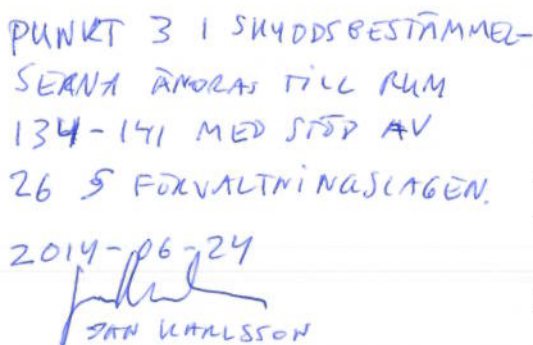 PUNKT 3 I SKYDDSBESTÄMMEL-
SERNA ÄNDRAS TILL RUM
134-141 MED STÖD AV
26 § FÖRVALTNINGSLAGEN.
2014-06-24
JAN KARLSSON